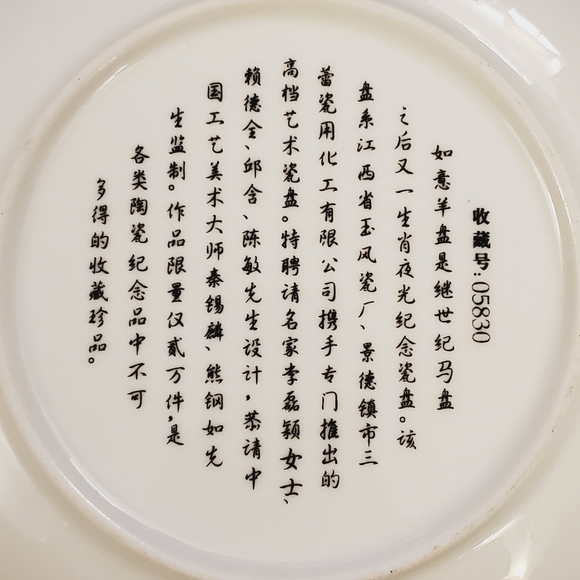 收藏号:05830
如意羊盘是继世纪马盘
之后又一生肖夜光纪念瓷盘。该
盘系江西省玉风瓷厂、景德镇市三
蕾瓷用化工有限公司携手专门推出的
高档艺术瓷盘。特聘请名家李磊颖女士、
赖德全、邱含、陈敏先生设计,恭请中
国工艺美术大师秦锡麟、熊钢如先
生监制。作品限量仅贰万件,是
各类陶瓷纪念品中不可
多得的收藏珍品。